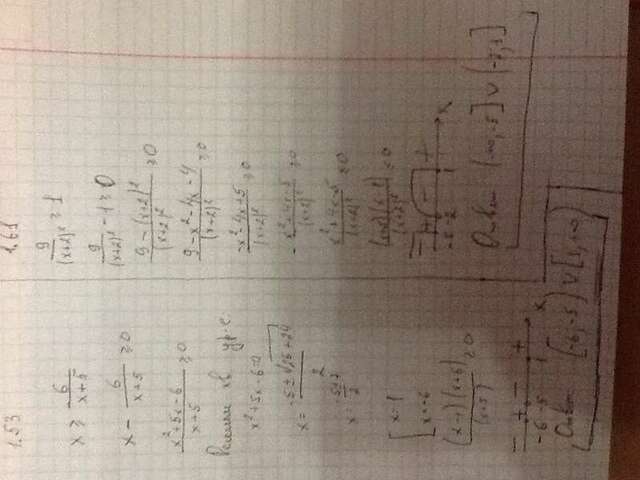 1.53
x ≥ 6/(x+5)
x − 6/(x+5) ≥ 0
(x²+5x−6)/(x+5) ≥ 0
Решаем кв. ур-е.
x²+5x−6=0
x = (−5±√(25+24))/2
x = (−5±7)/2
[x=1
x=−6
(x−1)(x+6)/(x+5) ≥ 0
− + − +
−6 −5 1 x
Ответ [−6,−5) ∨ [1,+∞)
1.61
9/(x+2)² ≥ 1
9/(x+2)² − 1 ≥ 0
(9−(x+2)²)/(x+2)² ≥ 0
(9−x²−4x−4)/(x+2)² ≥ 0
(−x²−4x+5)/(x+2)² ≥ 0
−(x²+4x−5)/(x+2)² ≥ 0
(x²+4x−5)/(x+2)² ≤ 0
−5 −2 1 x
Ответ